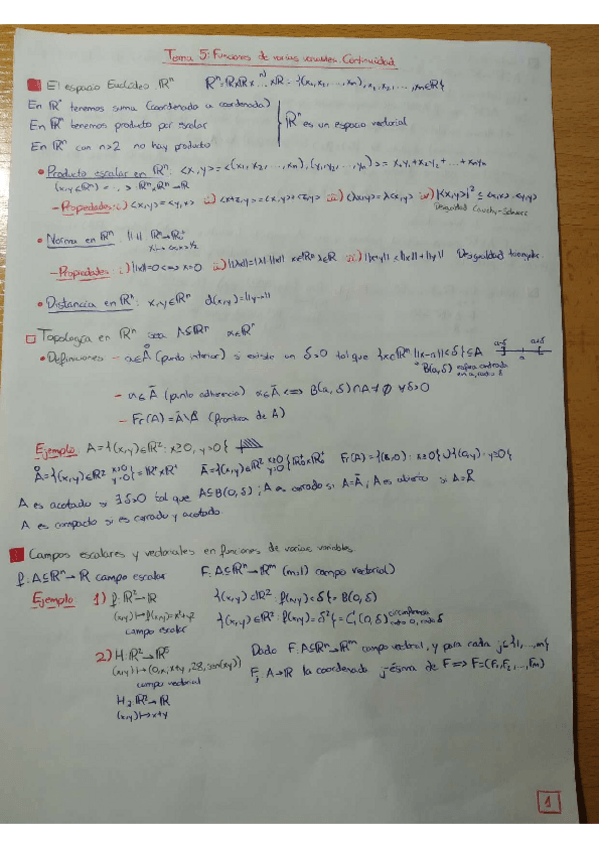 Tema 5: Funciones de varias variables. Continuidad
El espacio Euclídeo ℝⁿ ℝⁿ=ℝxℝx...xℝ={(x₁,x₂,...,xₙ), x₁,x₂,...,xₙ∈ℝ}
En ℝⁿ tenemos suma (coordenada a coordenada)
En ℝⁿ tenemos producto por escalar
ℝⁿ es un espacio vectorial
En ℝⁿ con n>2 no hay producto
• Producto escalar en ℝⁿ: <x,y>=<(x₁,x₂,...,xₙ),(y₁,y₂,...,yₙ)>= x₁y₁+x₂y₂+...+xₙyₙ
(x,y∈ℝⁿ) <·,·>: ℝⁿxℝⁿ→ℝ
- Propiedades: i) <x,y>=<y,x> ii) <x+z,y>=<x,y>+<z,y> iii) <λx,y>=λ<x,y> iv) |<x,y>|²≤<x,x>·<y,y>
Desigualdad Cauchy-Schwarz
• Norma en ℝⁿ: ||·|| ℝⁿ→ℝ⁺
x↦<x,x>1/2
- Propiedades: i) ||x||=0<=>x=0 ii) ||λx||=|λ| ||x|| x∈ℝⁿ λ∈ℝ iii) ||x+y||≤||x||+||y|| Desigualdad triangular
• Distancia en ℝⁿ: x,y∈ℝⁿ d(x,y)=||y-x||
Topología en ℝⁿ sea A⊆ℝⁿ x∈ℝⁿ
• Definiciones - a∈Å (punto interior) si existe un δ>0 tal que {x∈ℝⁿ ||x-a||<δ}⊆A
B(a,δ) esfera centrada
en a, radio δ
- a∈Ā (punto adherencia) a∈Ā <=> B(a,δ)∩A≠∅ ∀δ>0
- Fr(A)=Ā\Å (frontera de A)
Ejemplo: A={(x,y)∈ℝ²: x≥0, y>0}
Å={(x,y)∈ℝ² x>0 y>0}=ℝ⁺xℝ⁺ Ā={(x,y)∈ℝ² x≥0 y≥0}ℝ₀⁺xℝ₀⁺ Fr(A)={(x,0): x≥0}∪{(0,y): y≥0}
A es acotado si ∃δ>0 tal que A⊆B(0,δ); A es cerrado si A=Ā; A es abierto si A=Å
A es compacto si es cerrado y acotado.
Campos escalares y vectoriales en funciones de varias variables
f: A⊆ℝⁿ→ℝ campo escalar F: A⊆ℝⁿ→ℝᵐ (m>1) campo vectorial)
Ejemplo: 1) f: ℝ²→ℝ {(x,y)∈ℝ²: f(x,y)<δ²}=B(0,δ)
(x,y)↦f(x,y)=x²+y²
campo escalar
{(x,y)∈ℝ²: f(x,y)=δ²}=C(0,δ) circunferencia centro 0, radio δ
2) H: ℝ²→ℝ⁵
(x,y)↦(0,x,x+y,28,sen(xy))
campo vectorial
Dado F: A⊆ℝⁿ→ℝᵐ campo vectorial, y para cada j∈{1,...,m}
Fⱼ A→ℝ la coordenada j-ésima de F => F=(F₁,F₂,...,Fₘ)
H₃: ℝ²→ℝ
(x,y)↦x+y
1